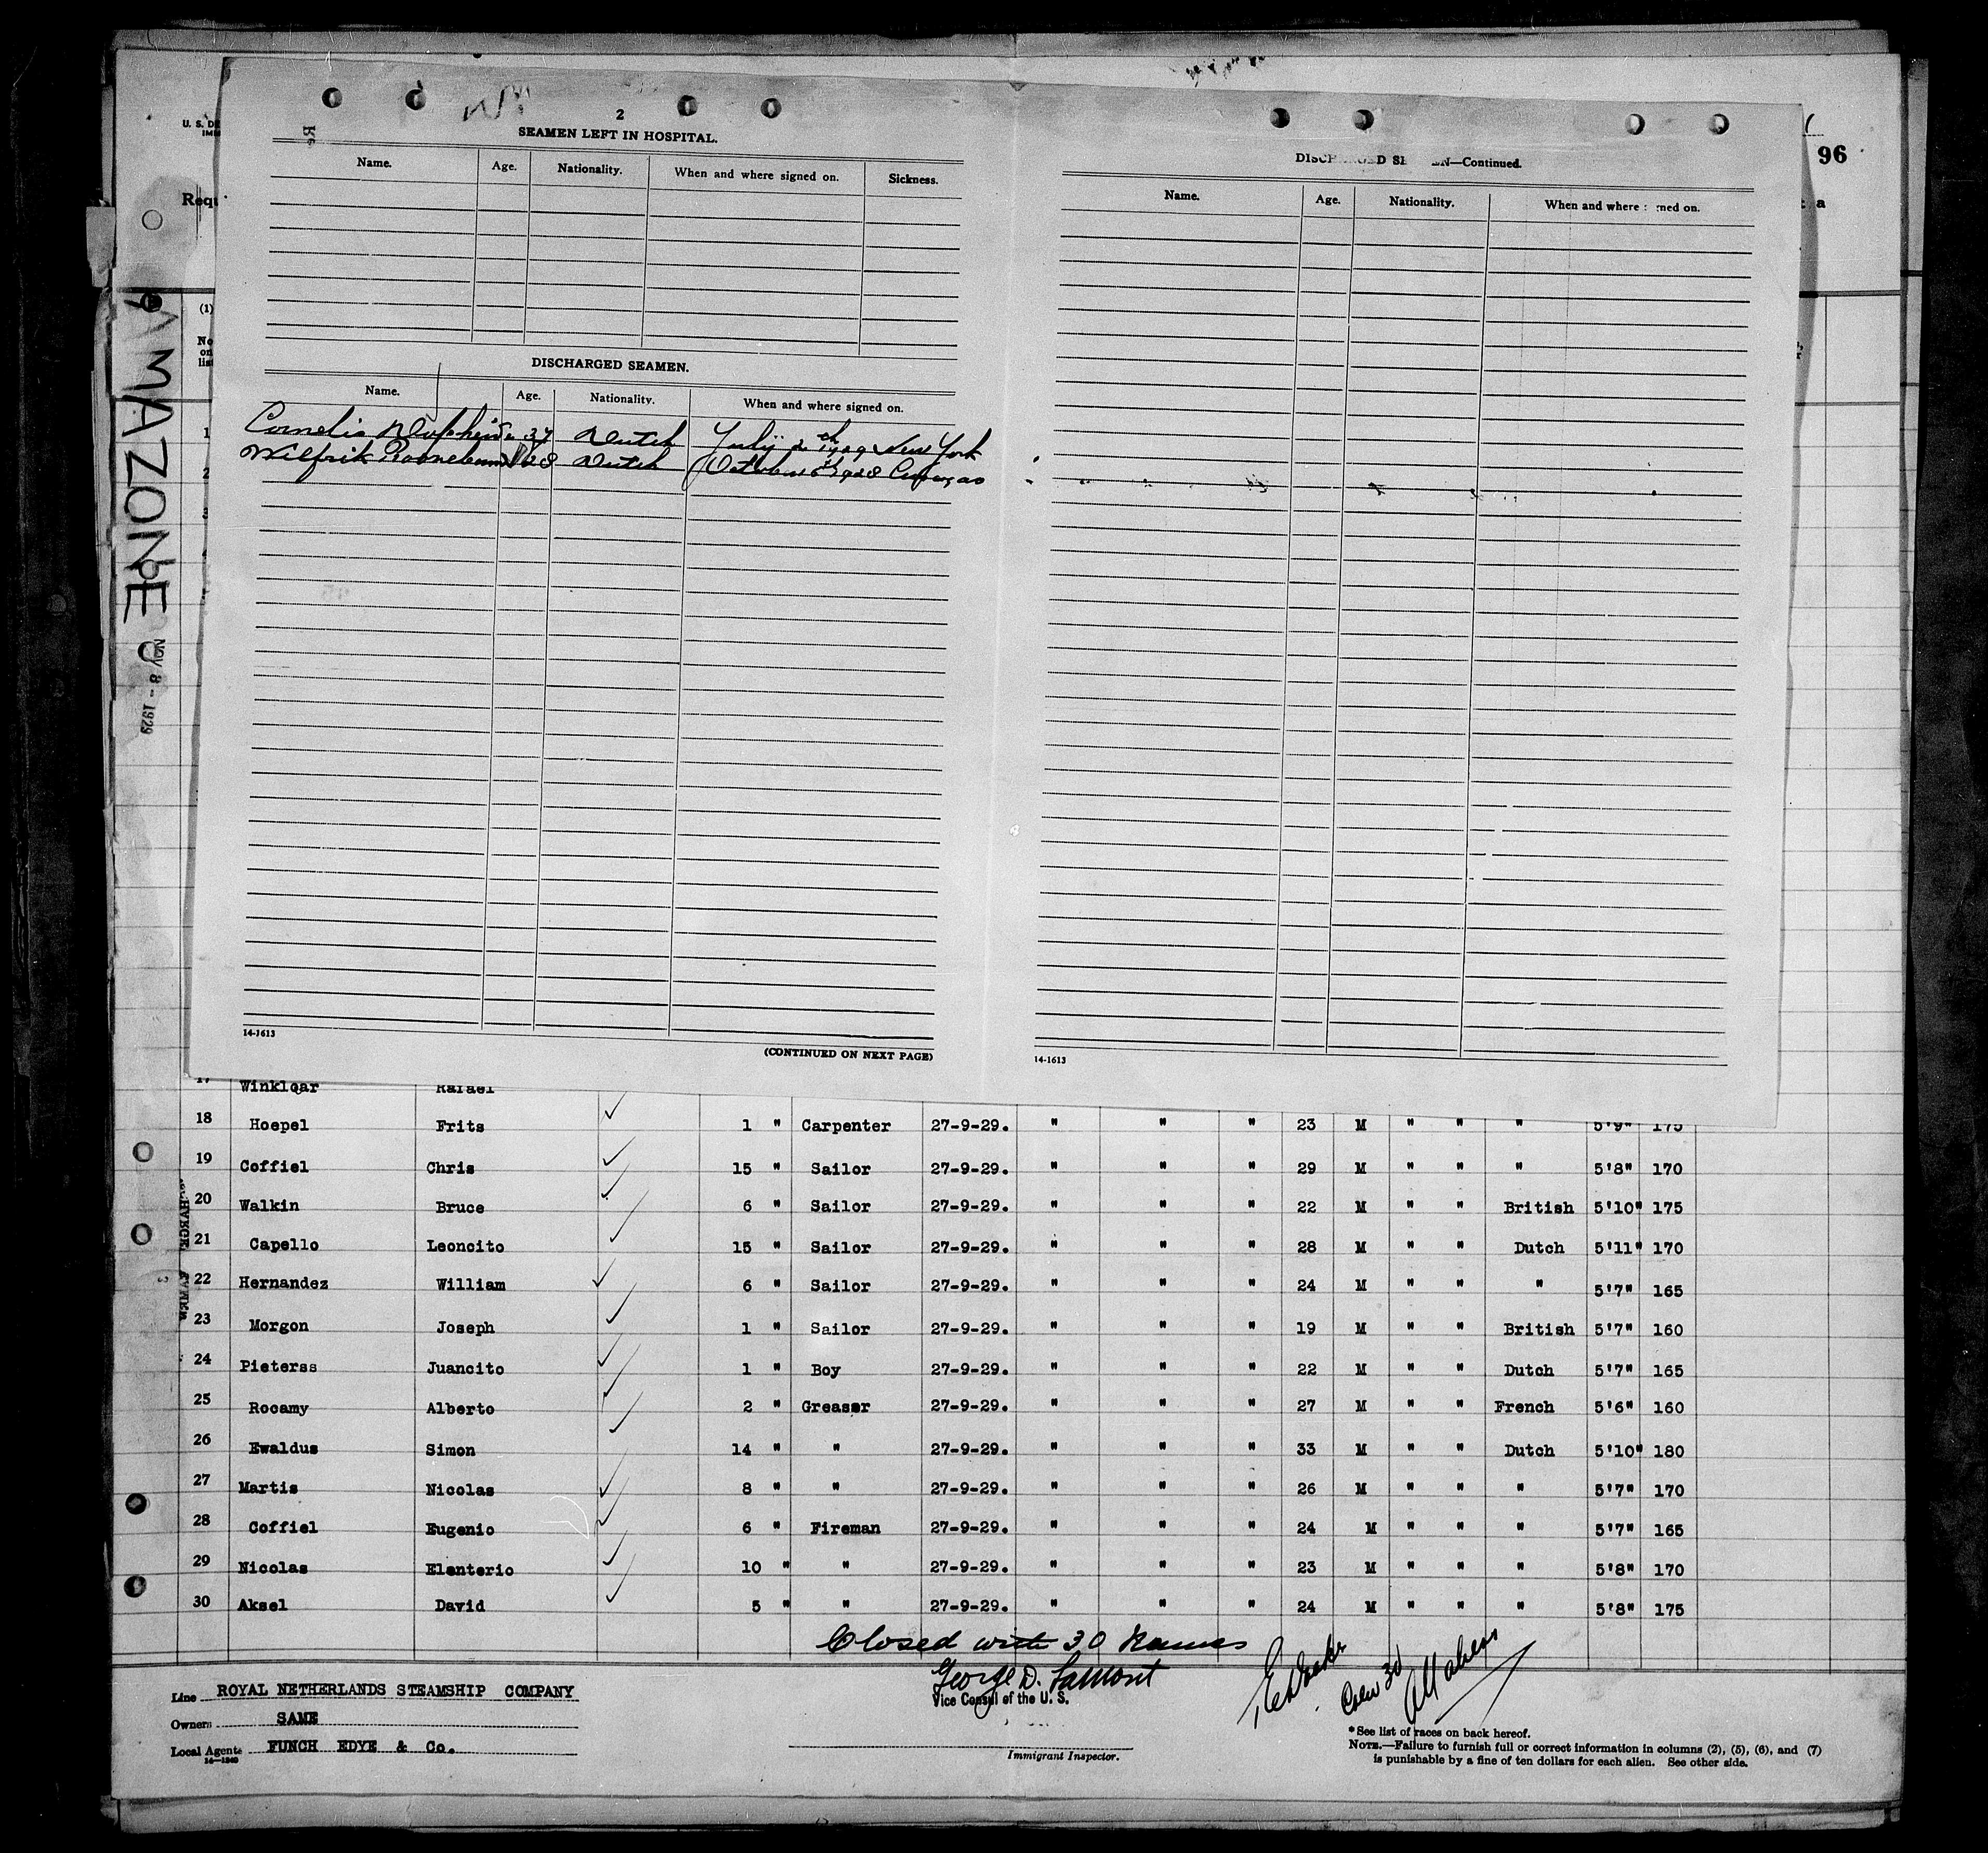 U. S. DE
Requ
(1)
No
on
list
96
a
AMAZONE
NOV 8 - 1929
2
SEAMEN LEFT IN HOSPITAL.
Name. Age. Nationality. When and where signed on. Sickness.
DISCHARGED SEAMEN.
Name. Age. Nationality. When and where signed on.
Cornelis 37 Dutch New York
Wilfrik 28 Dutch 1928 Curaçao
14-1613
(CONTINUED ON NEXT PAGE)
DISCHARGED SE N—Continued.
Name. Age. Nationality. When and where ned on.
14-1613
17 Winklqar Rafael
18 Hoepel Frits 1 " Carpenter 27-9-29. " " " 23 M " " " 5'9" 175
19 Coffiel Chris 15 " Sailor 27-9-29. " " " 29 M " " " 5'8" 170
20 Walkin Bruce 6 " Sailor 27-9-29. " " " 22 M " " British 5'10" 175
21 Capello Leoncito 15 " Sailor 27-9-29. " " " 28 M " " Dutch 5'11" 170
22 Hernandez William 6 " Sailor 27-9-29. " " " 24 M " " " 5'7" 165
23 Morgon Joseph 1 " Sailor 27-9-29. " " " 19 M " " British 5'7" 160
24 Pieterss Juancito 1 " Boy 27-9-29. " " " 22 M " " Dutch 5'7" 165
25 Rocamy Alberto 2 " Greaser 27-9-29. " " " 27 M " " French 5'6" 160
26 Ewaldus Simon 14 " " 27-9-29. " " " 33 M " " Dutch 5'10" 180
27 Martis Nicolas 8 " " 27-9-29. " " " 26 M " " " 5'7" 170
28 Coffiel Eugenio 6 " Fireman 27-9-29. " " " 24 M " " " 5'7" 165
29 Nicolas Elenterio 10 " " 27-9-29. " " " 23 M " " " 5'8" 170
30 Aksel David 5 " " 27-9-29. " " " 24 M " " " 5'8" 175
Closed with 30 Names
George D. Lamont
Vice Consul of the U. S.
Crew 30
Line ROYAL NETHERLANDS STEAMSHIP COMPANY
Owners SAME
Local Agents FUNCH EDYE & Co.
14-1240
Immigrant Inspector.
*See list of races on back hereof.
NOTE.—Failure to furnish full or correct information in columns (2), (5), (6), and (7)
is punishable by a fine of ten dollars for each alien. See other side.